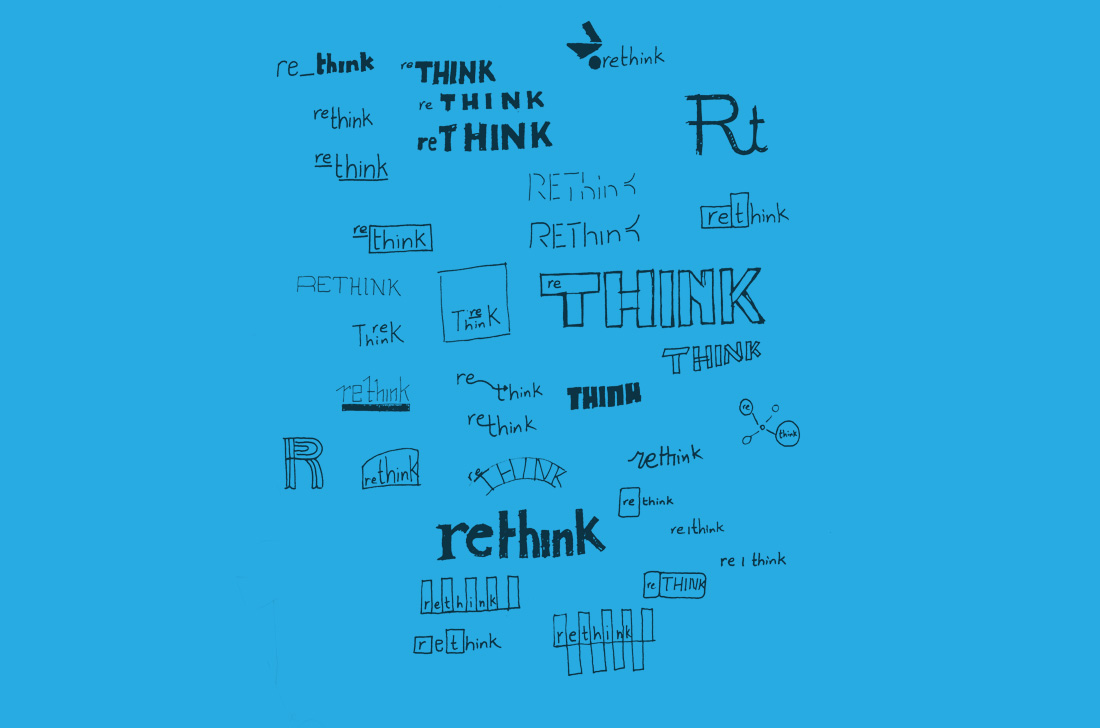 re_think
reTHINK
rethink
re THINK
rethink
reTHINK
Rt
rethink
REThinK
rethink
rethink
REThinK
RETHINK
Thre
hinK
Thre
hinK
re THINK
THINK
rethink
re think
THINK
rethink
re
think
R
rethink
reTHINK
rethink
re think
rethink
re|think
re | think
rethink
re THINK
rethink
rethink